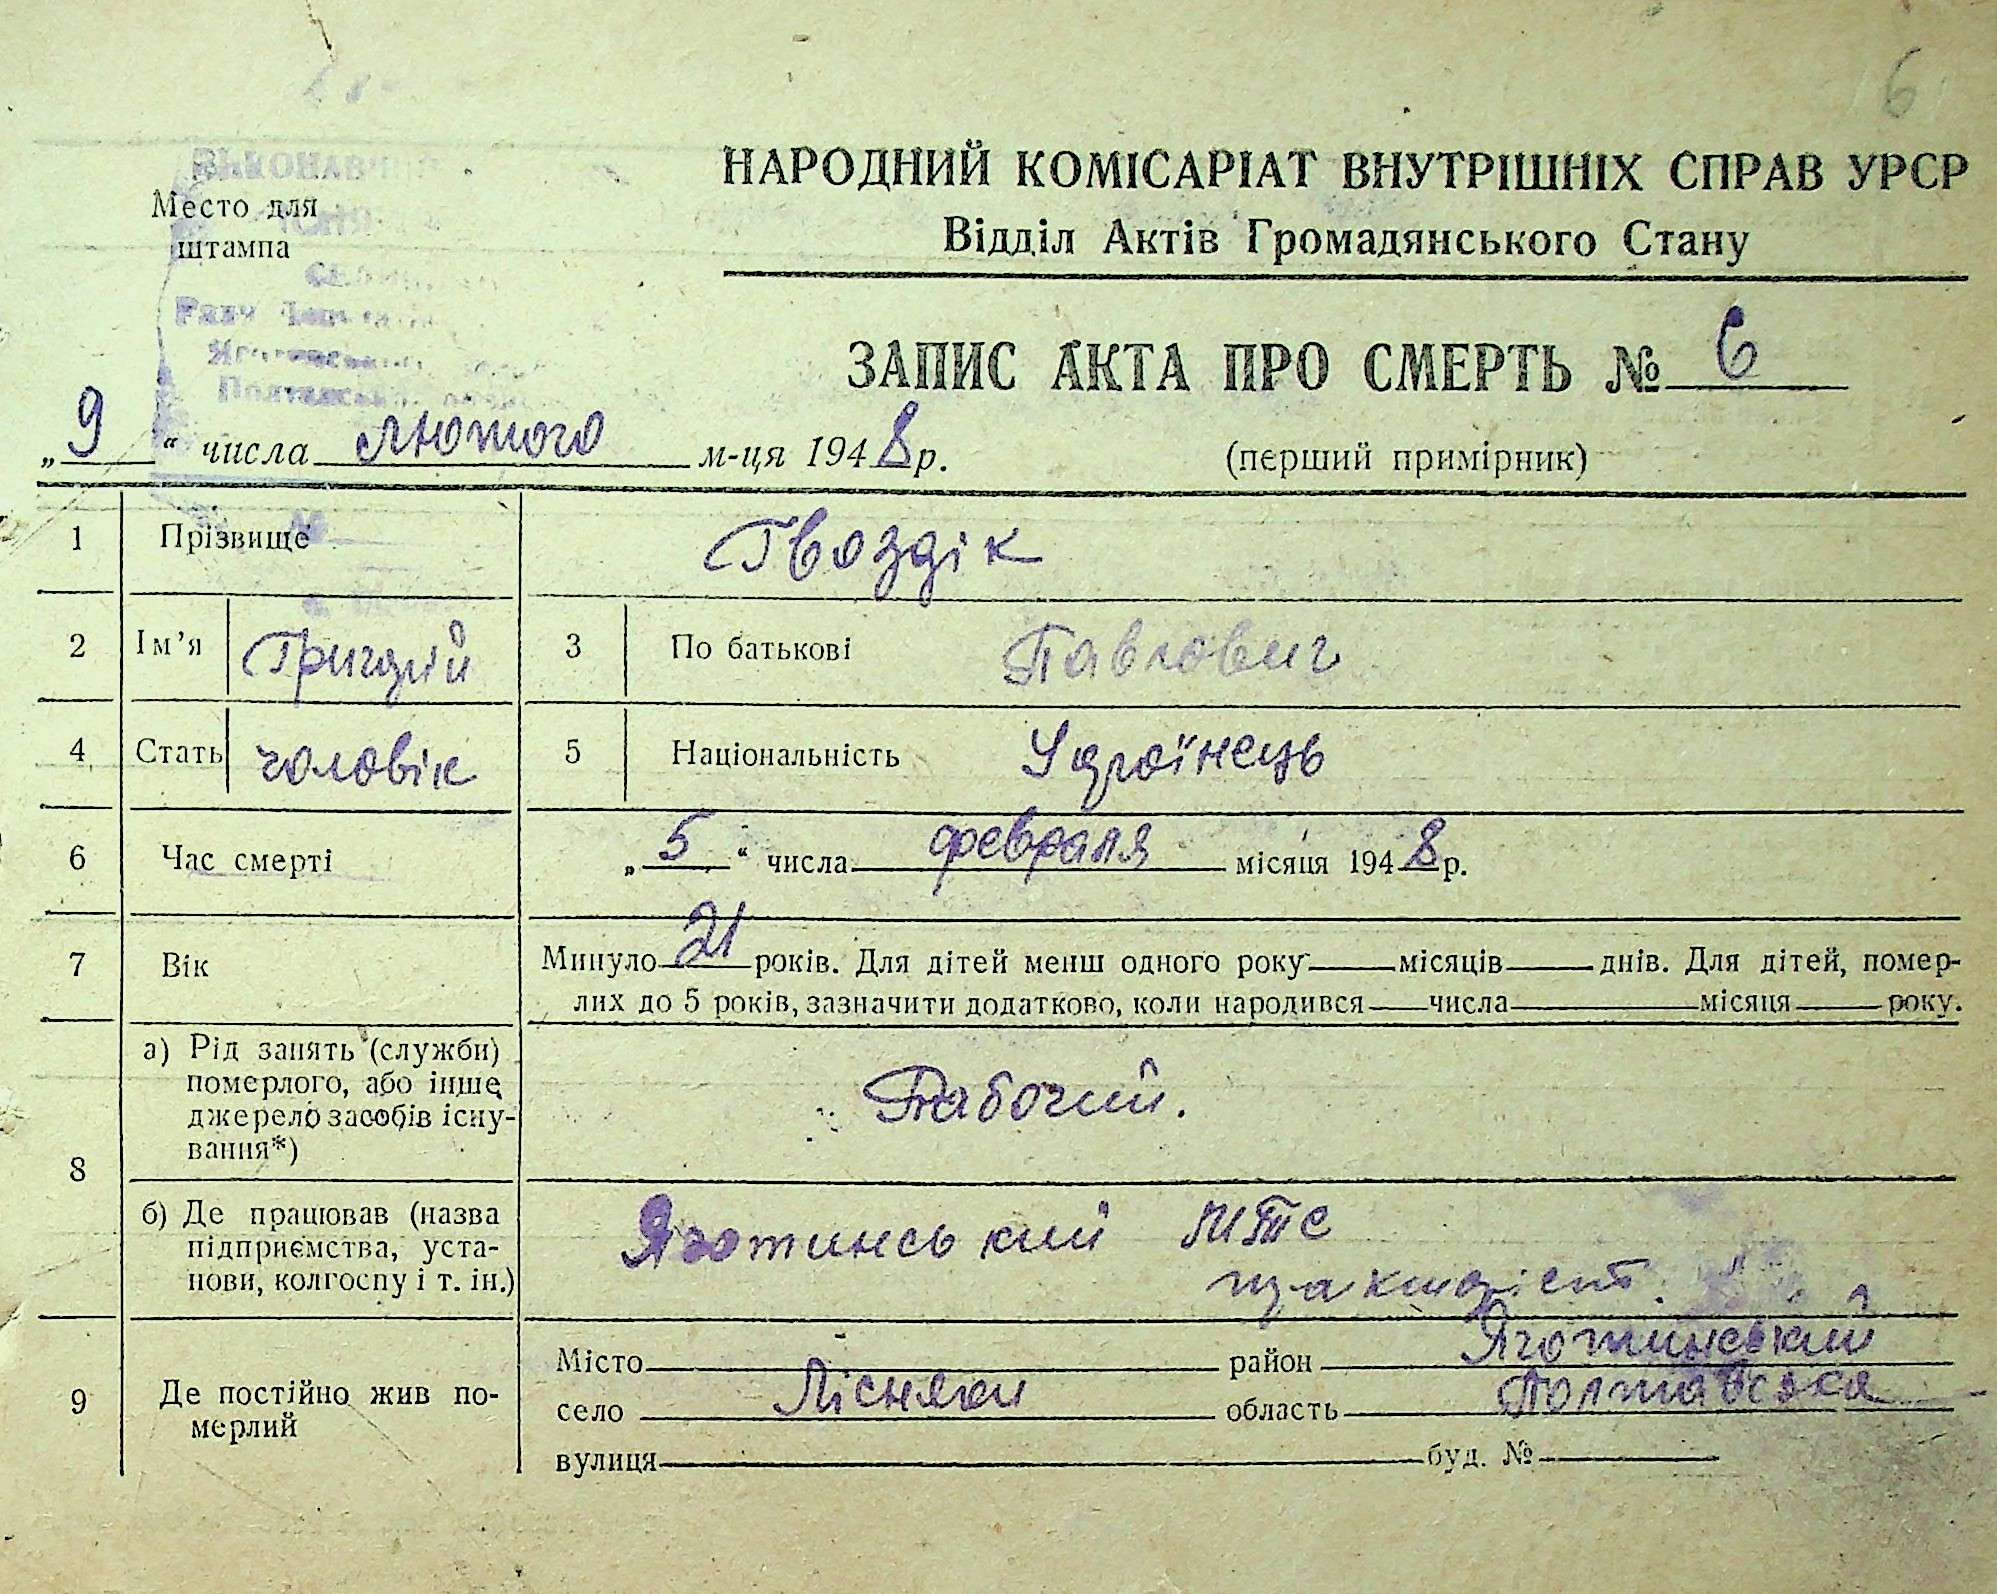 6
НАРОДНИЙ КОМІСАРІАТ ВНУТРІШНІХ СПРАВ УРСР
Відділ Актів Громадянського Стану
Место для
штампа
ЗАПИС АКТА ПРО СМЕРТЬ № 6
„9“ числа лютого м-ця 1948 р.
(перший примірник)
1 Прізвище Гвоздік
2 Ім’я Григорій 3 По батькові Павлович
4 Стать чоловік 5 Національність Українець
6 Час смерті „5“ числа февраля місяця 1948 р.
7 Вік Минуло 21 років. Для дітей менш одного року місяців днів. Для дітей, помер-
лих до 5 років, зазначити додатково, коли народився числа місяця року.
8 а) Рід занять (служби)
померлого, або інше
джерело засобів існу-
вання*)
Рабочий.
б) Де працював (назва
підприємства, уста-
нови, колгоспу і т. ін.)
Яготинський МТС
тракторіст.
9 Де постійно жив по-
мерлий
Місто район Яготинський
село Лісняки область Полтавська
вулиця буд. №